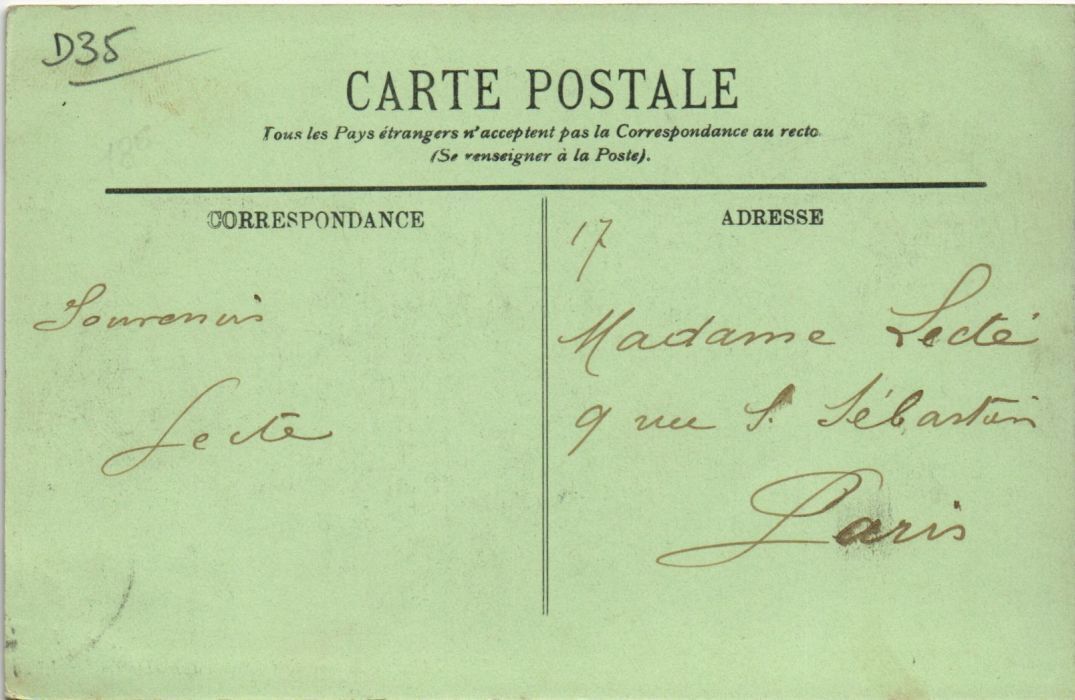 D35
CARTE POSTALE
Tous les Pays étrangers n'acceptent pas la Correspondance au recto
(Se renseigner à la Poste).
CORRESPONDANCE
Souvenirs
Lecté
ADRESSE
17
Madame Lecté
9 rue S. Sébastien
Paris